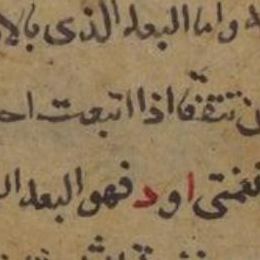 واما البعد الذى بالا
تتفقا اذا اتبعت احـ
فنغمتى ا و د فهو البعد ال